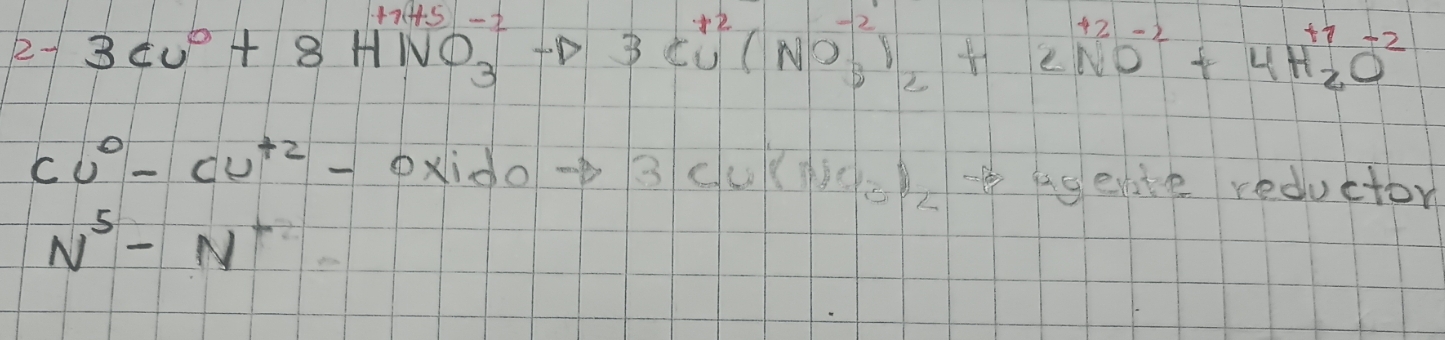 2- 3Cu⁰ + 8H⁺¹N⁺⁵O₃⁻² → 3Cu⁺²(NO₃⁻²)₂ + 2N⁺²O⁻² + 4H₂⁺¹O⁻²
Cu⁰ - Cu⁺² - oxido → 3Cu(NO₃)₂ → agente reductor
N⁵ - N⁺² -